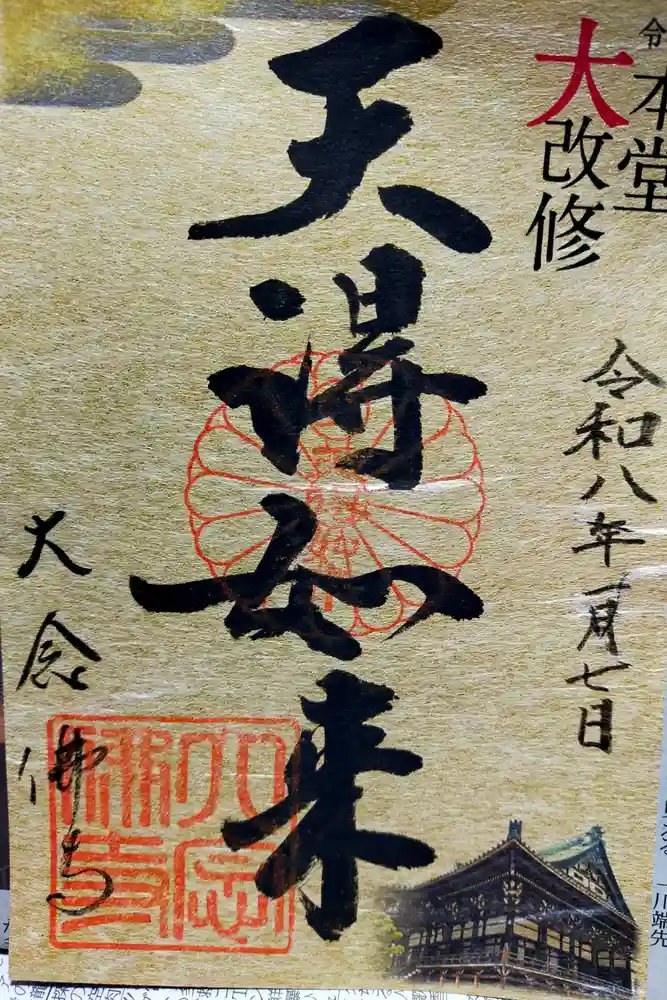 令
本堂
大改修
令和八年一月七日
天得如来
大念佛寺
川端先